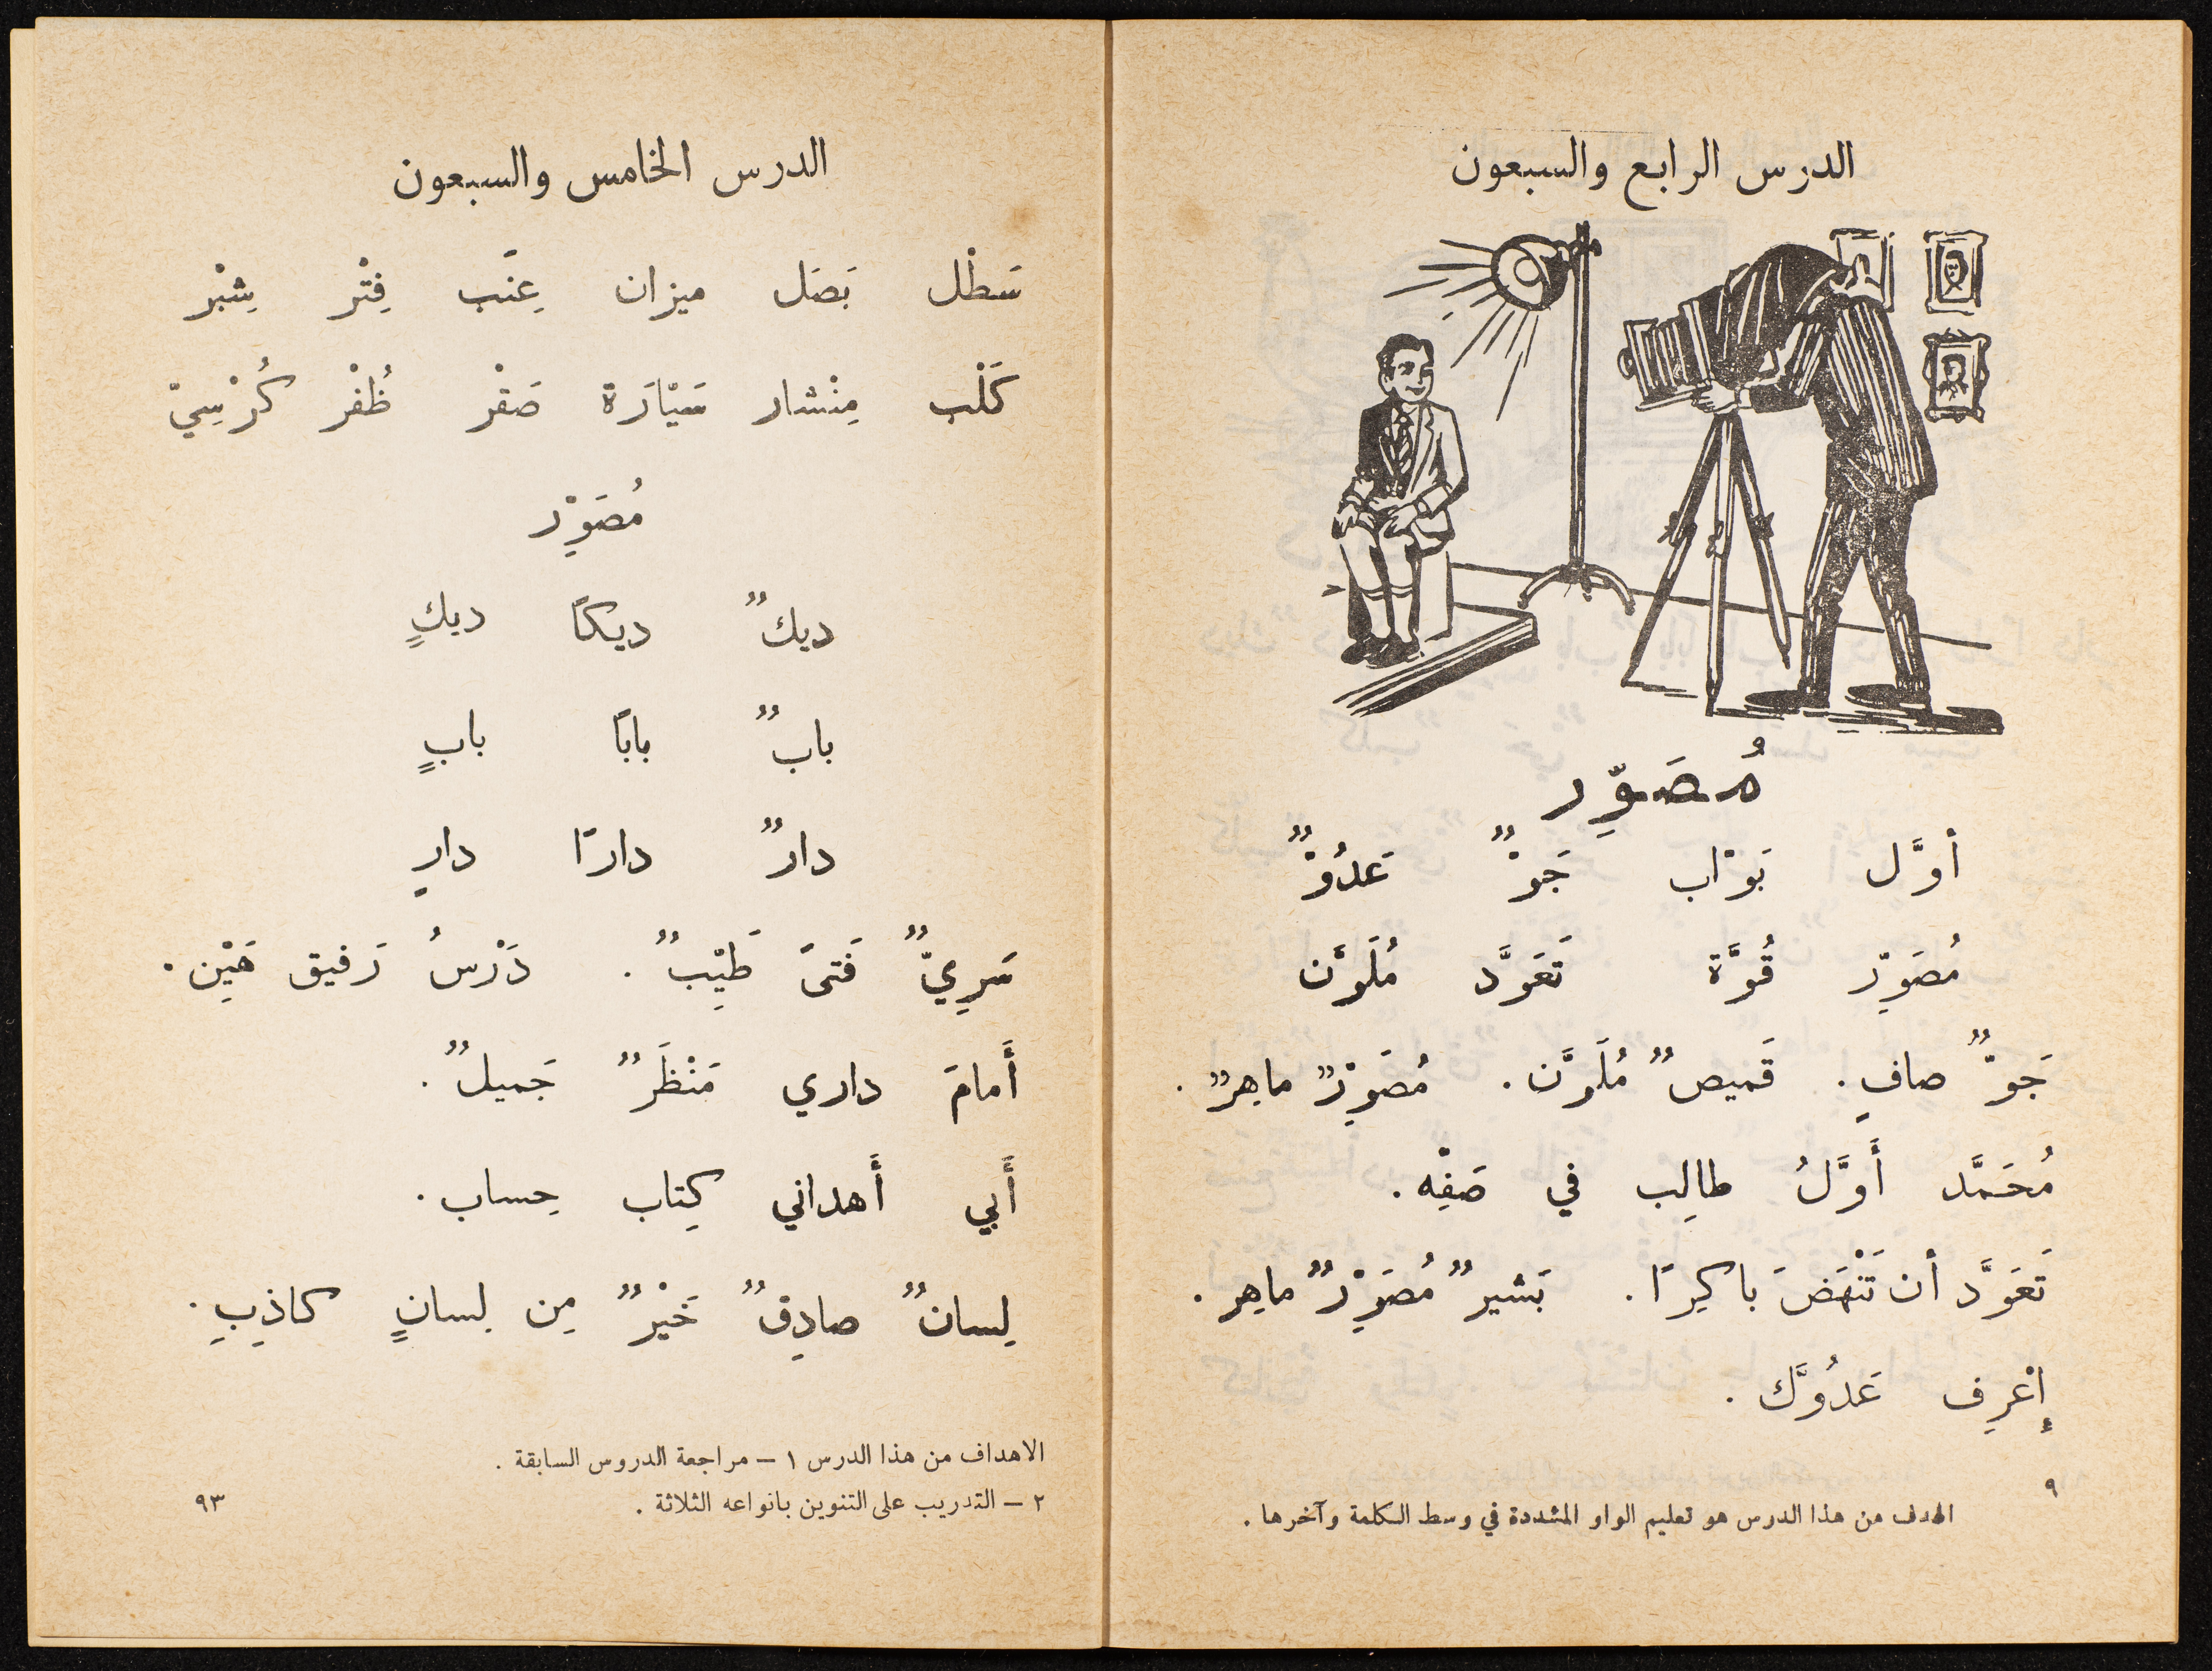 الدرس الرابع والسبعون
مُصَوِّر
أوَّل بَوّاب جَوٌّ عَدُوٌّ
مُصَوِّر قُوَّة تَعَوَّد مُلَوَّن
جَوٌّ صافٍ . قَميصٌ مُلَوَّن . مُصَوِّرٌ ماهِرٌ .
مُحَمَّد أَوَّلُ طالِب في صَفِّه .
تَعَوَّد أن تَنْهَضَ باكِرًا . بَشيرٌ مُصَوِّرٌ ماهِر .
إعْرِف عَدُوَّك .
٩
الهدف من هذا الدرس هو تعليم الواو المشددة في وسط الكلمة وآخرها .
الدرس الخامس والسبعون
سَطْل بَصَل ميزان عِنَب فِتْر شِبْر
كَلْب مِنْشار سَيّارَة صَقْر ظُفْر كُرْسِيّ
مُصَوِّر
ديكٌ ديكًا ديكٍ
بابٌ بابًا بابٍ
دارٌ دارًا دارٍ
سَرِيٌّ فَتىً طَيِّبٌ . دَرْسُ رَفيق هَيِّن .
أَمامَ داري مَنْظَرٌ جَميلٌ .
أَبي أَهداني كِتاب حِساب .
لِسانٌ صادِقٌ خَيْرٌ مِن لِسانٍ كاذِبِ .
الاهداف من هذا الدرس ١ – مراجعة الدروس السابقة .
٢ – التدريب على التنوين بانواعه الثلاثة .
٩٣